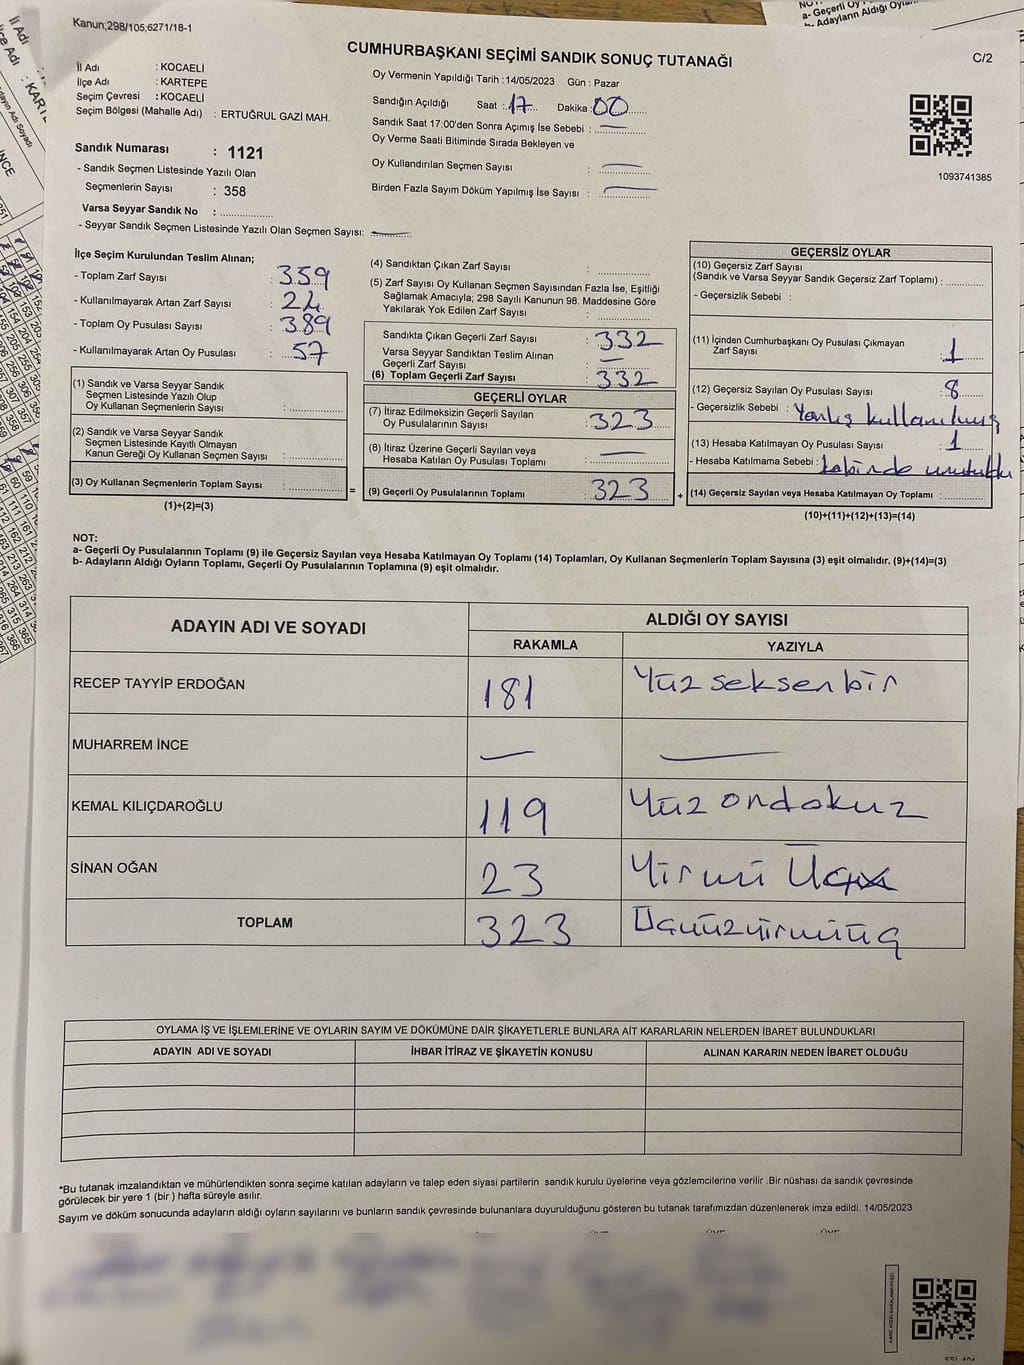 Kanun;298/105,6271/18-1
CUMHURBAŞKANI SEÇİMİ SANDIK SONUÇ TUTANAĞI
C/2
İl Adı : KOCAELİ
İlçe Adı : KARTEPE
Seçim Çevresi : KOCAELİ
Seçim Bölgesi (Mahalle Adı) : ERTUĞRUL GAZİ MAH.
Sandık Numarası : 1121
- Sandık Seçmen Listesinde Yazılı Olan
Seçmenlerin Sayısı : 358
Varsa Seyyar Sandık No : ..................
- Seyyar Sandık Seçmen Listesinde Yazılı Olan Seçmen Sayısı: —
Oy Vermenin Yapıldığı Tarih : 14/05/2023 Gün : Pazar
Sandığın Açıldığı Saat : 17 Dakika : 00
Sandık Saat 17:00'den Sonra Açımış İse Sebebi : —
Oy Verme Saati Bitiminde Sırada Bekleyen ve
Oy Kullandırılan Seçmen Sayısı : —
Birden Fazla Sayım Döküm Yapılmış İse Sayısı : —
1093741385
İlçe Seçim Kurulundan Teslim Alınan;
- Toplam Zarf Sayısı : 359
- Kullanılmayarak Artan Zarf Sayısı : 24
- Toplam Oy Pusulası Sayısı : 389
- Kullanılmayarak Artan Oy Pusulası : 57
(1) Sandık ve Varsa Seyyar Sandık
Seçmen Listesinde Yazılı Olup
Oy Kullanan Seçmenlerin Sayısı :
(2) Sandık ve Varsa Seyyar Sandık
Seçmen Listesinde Kayıtlı Olmayan
Kanun Gereği Oy Kullanan Seçmen Sayısı :
(3) Oy Kullanan Seçmenlerin Toplam Sayısı :
(1)+(2)=(3)
=
(4) Sandıktan Çıkan Zarf Sayısı :
(5) Zarf Sayısı Oy Kullanan Seçmen Sayısından Fazla İse, Eşitliği
Sağlamak Amacıyla; 298 Sayılı Kanunun 98. Maddesine Göre
Yakılarak Yok Edilen Zarf Sayısı :
Sandıkta Çıkan Geçerli Zarf Sayısı : 332
Varsa Seyyar Sandıktan Teslim Alınan
Geçerli Zarf Sayısı : —
(6) Toplam Geçerli Zarf Sayısı : 332
GEÇERLİ OYLAR
(7) İtiraz Edilmeksizin Geçerli Sayılan
Oy Pusulalarının Sayısı : 323
(8) İtiraz Üzerine Geçerli Sayılan veya
Hesaba Katılan Oy Pusulası Toplamı : —
(9) Geçerli Oy Pusulalarının Toplamı : 323
+
GEÇERSİZ OYLAR
(10) Geçersiz Zarf Sayısı
(Sandık ve Varsa Seyyar Sandık Geçersiz Zarf Toplamı) :
- Geçersizlik Sebebi :
(11) İçinden Cumhurbaşkanı Oy Pusulası Çıkmayan
Zarf Sayısı : 1
(12) Geçersiz Sayılan Oy Pusulası Sayısı : 8
- Geçersizlik Sebebi : Yanlış kullanılmış
(13) Hesaba Katılmayan Oy Pusulası Sayısı : 1
- Hesaba Katılmama Sebebi : kabinde unutuldu
(14) Geçersiz Sayılan veya Hesaba Katılmayan Oy Toplamı :
(10)+(11)+(12)+(13)=(14)
NOT:
a- Geçerli Oy Pusulalarının Toplamı (9) ile Geçersiz Sayılan veya Hesaba Katılmayan Oy Toplamı (14) Toplamları, Oy Kullanan Seçmenlerin Toplam Sayısına (3) eşit olmalıdır. (9)+(14)=(3)
b- Adayların Aldığı Oyların Toplamı, Geçerli Oy Pusulalarının Toplamına (9) eşit olmalıdır.
ADAYIN ADI VE SOYADI
ALDIĞI OY SAYISI
RAKAMLA YAZIYLA
RECEP TAYYİP ERDOĞAN 181 Yüz seksen bir
MUHARREM İNCE — —
KEMAL KILIÇDAROĞLU 119 Yüz ondokuz
SİNAN OĞAN 23 Yirmi Üç
TOPLAM 323 Üçyüzyirmiüç
OYLAMA İŞ VE İŞLEMLERİNE VE OYLARIN SAYIM VE DÖKÜMÜNE DAİR ŞİKAYETLERLE BUNLARA AİT KARARLARIN NELERDEN İBARET BULUNDUKLARI
ADAYIN ADI VE SOYADI İHBAR İTİRAZ VE ŞİKAYETİN KONUSU ALINAN KARARIN NEDEN İBARET OLDUĞU
*Bu tutanak imzalandıktan ve mühürlendikten sonra seçime katılan adayların ve talep eden siyasi partilerin sandık kurulu üyelerine veya gözlemcilerine verilir .Bir nüshası da sandık çevresinde
görülecek bir yere 1 (bir ) hafta süreyle asılır.
Sayım ve döküm sonucunda adayların aldığı oyların sayılarını ve bunların sandık çevresinde bulunanlara duyurulduğunu gösteren bu tutanak tarafımızdan düzenlenerek imza edildi. 14/05/2023